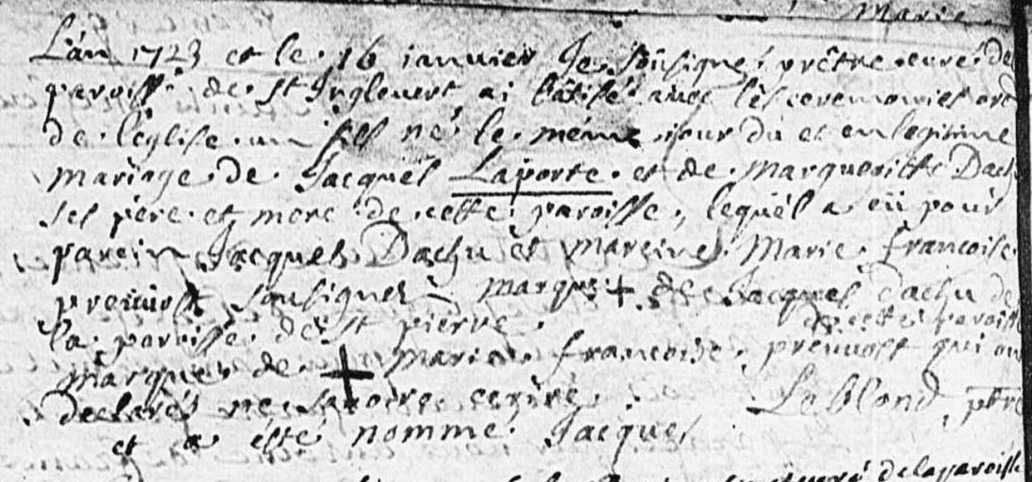 Marie
L'an 1723 et le 16 ianuier Je soûsigné prêtre curé de
paroisse de st Inglevert ai bâtisé avec les ceremonies ord
de l'église un fils né le même jour du et en legitime
mariage de Jacques Laporte et de Margueritte Dach
ses père et mere de cette paroisse, lequel a eü pour
parein Jacques Dachu et mareine Marie francoise
preuuost sousignés marque + de Jacques dachu de
la paroisse de st pierre. de cette paroisse
marque de + marie francoise preuuost qui on
declarés ne savoire ecrire. Le blond, ptre
et a été nommé Jacques
curé de la paroisse